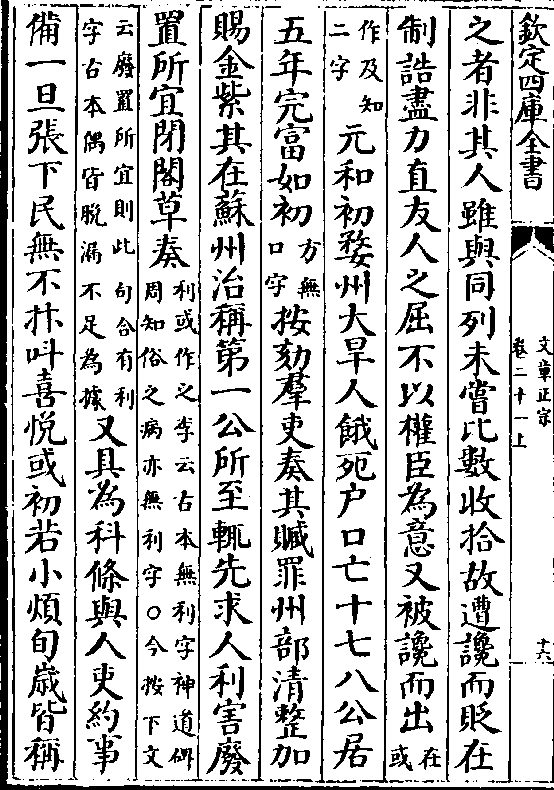 欽定四庫全書
文章正宗
卷二十一上
十六
之者非其人雖與同列未嘗比數收拾故遭讒而貶在
制誥盡力直友人之屈不以權臣為意又被讒而出在
或
作及知
二字元和初婺州大旱人餓死户口亡十七八公居
五年完富如初方無
口字按劾羣吏奏其贓罪州部清整加
賜金紫其在蘇州治稱第一公所至輒先求人利害廢
置所宜閉閣草奏利或作之李云古本無利字神道碑
周知俗之病亦無利字○今按下文
云廢置所宜則此句合有利
字古本偶皆脱漏不足為據又具為科條與人吏約事
備一旦張下民無不抃叫喜悦或初若小煩旬歲皆稱